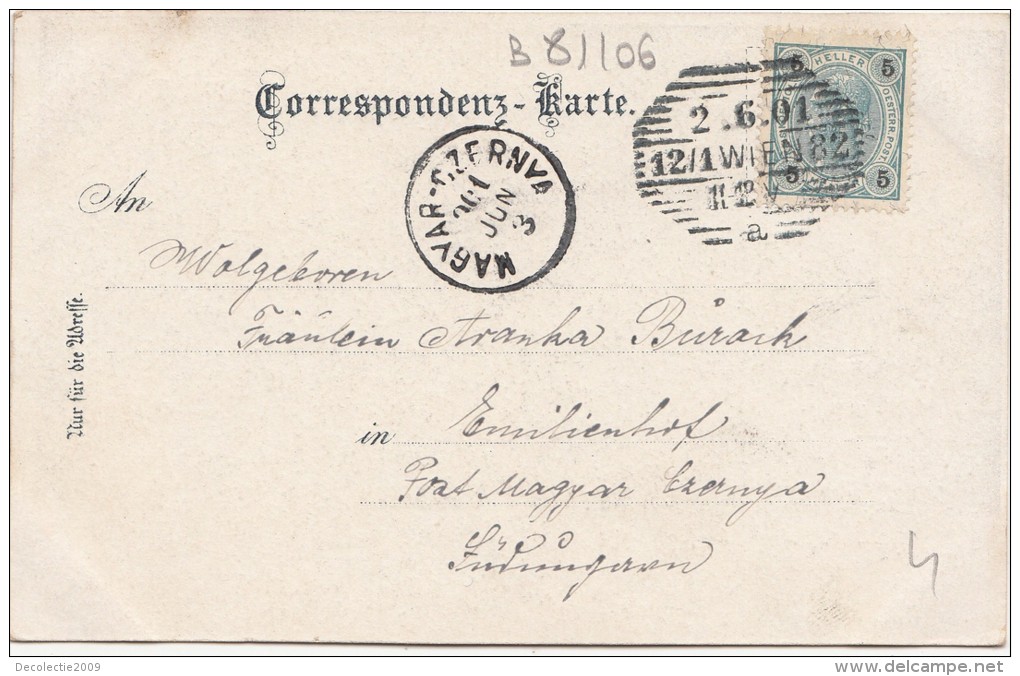 B 81/106
5 HELLER 5
OESTERR. POST
5 5
Correspondenz-Karte.
2.6.01
12/1 WIEN 82
a
MAGYAR-CZERNYA
901
JUN
3
An
Wolgeboren
Fräulein Aranka Burack
in Emilienhof
Post Magyar Czernya
Südungarn
Nur für die Adresse.
4
Decolectie2009
www.delcampe.net